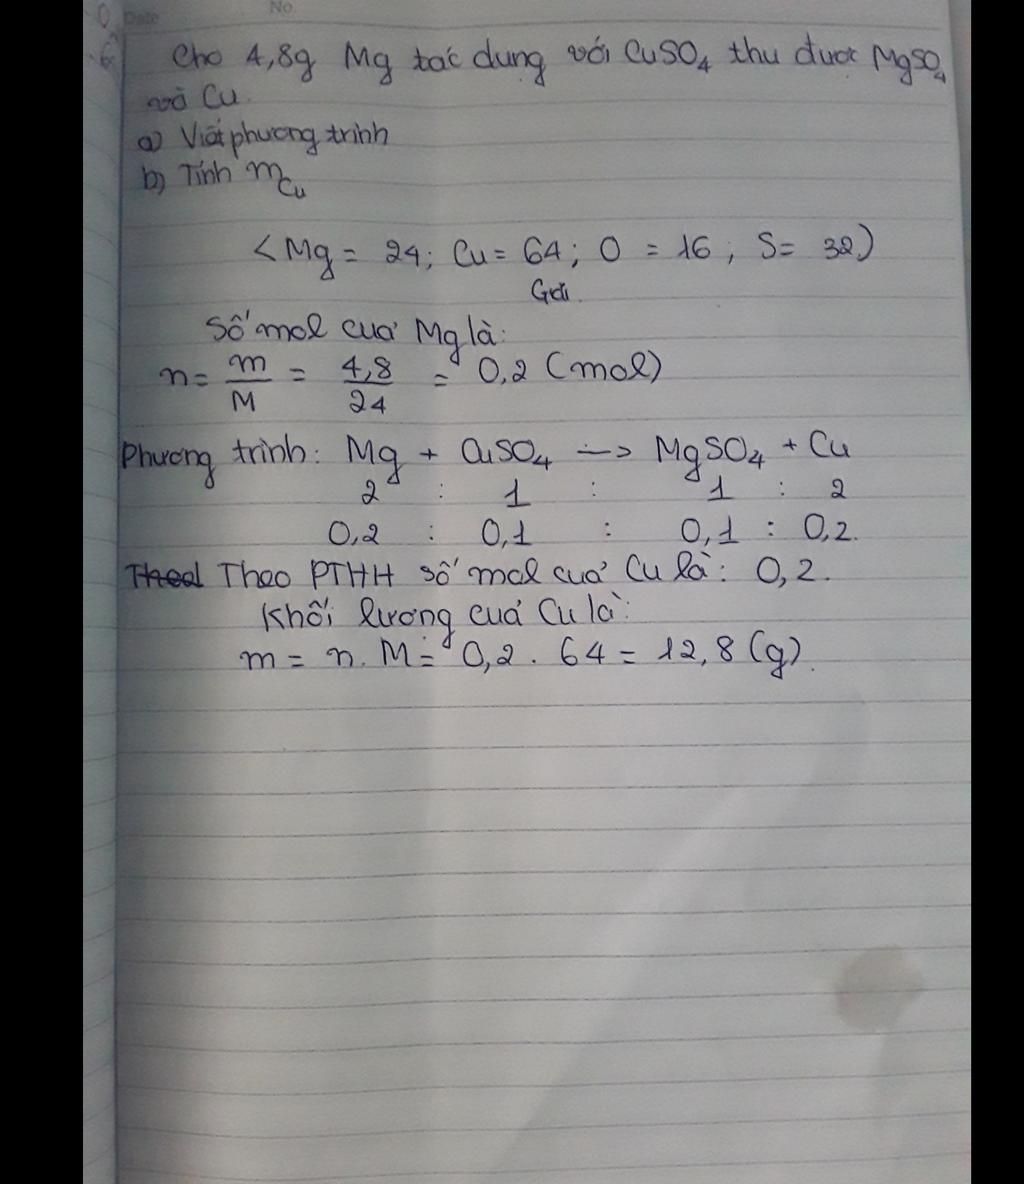 Date No.
6. Cho 4,8g Mg tác dụng với CuSO4 thu được MgSO4
và Cu.
a) Viết phương trình
b) Tính mCu
<Mg = 24; Cu = 64; O = 16; S = 32)
Giải
Số mol của Mg là:
n = m/M = 4,8/24 = 0,2 (mol)
Phương trình: Mg + CuSO4 --> MgSO4 + Cu
2 : 1 : 1 : 2
0,2 : 0,1 : 0,1 : 0,2.
Theo PTHH số mol của Cu là: 0,2.
Khối lượng của Cu là:
m = n. M = 0,2 . 64 = 12,8 (g).